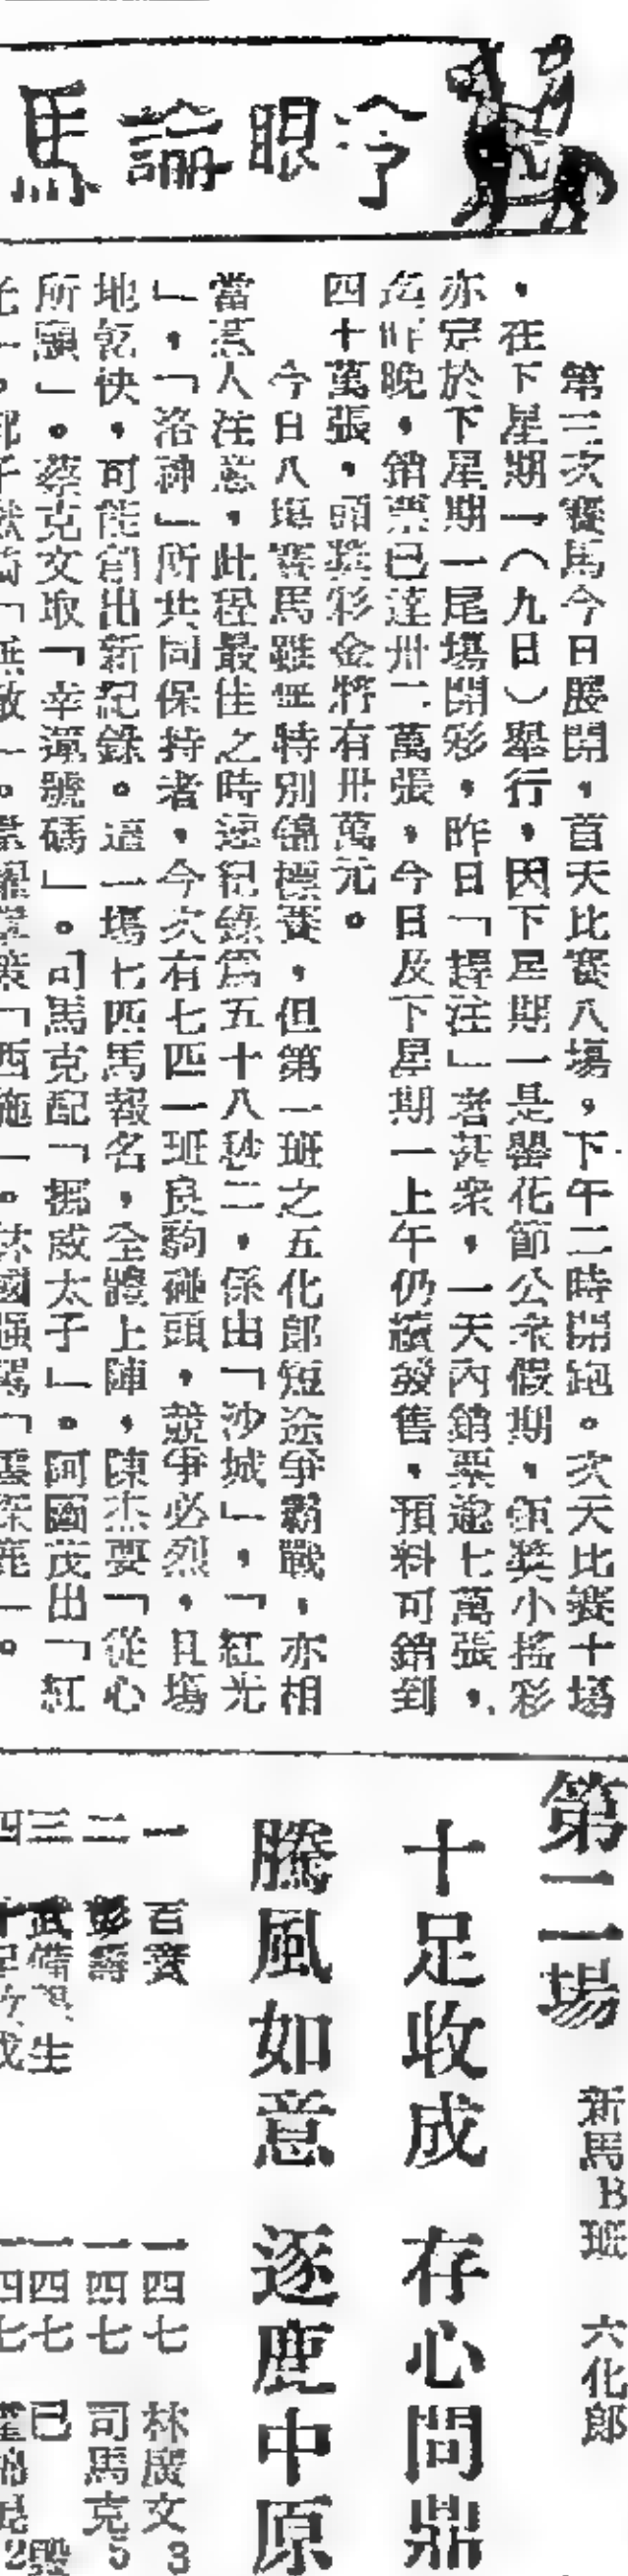 冷眼論馬
第三次賽馬今日展開，首天比賽八場，下午二時開跑。次天比賽十場
，在下星期一（九日）舉行，因下星期一是罌花節公衆假期，領獎小搖彩
亦定於下星期一尾場開彩，昨日「趕注」者甚衆，一天內銷票逾七萬張，
迄昨晚，銷票已達卅二萬張，今日及下星期一上午仍續發售，預料可銷到
四十萬張，頭獎彩金將有卅萬元。
今日八塲賽馬雖無特別錦標賽，但第一班之五化郎短途爭霸戰，亦相
當惹人注意，此程最佳之時速紀錄爲五十八秒二，係由「沙城」，「紅光
」，「洛神」所共同保持者，今次有七匹一班良駒碰頭，競爭必烈，且塲
地乾快，可能創出新記錄。這一場七匹馬報名，全體上陣，陳杰要「從心
所願」。蔡克文取「幸運號碼」。司馬克配「挪威太子」。阿圖茂出「紅
「無敵」。「西施」。林國強
第二場 新馬B班 六化郎
十足收成 存心問鼎
騰風如意 逐鹿中原
一 百寶 一四七 林廣文 3
二 一四七 司馬克 5
三 一四七 巳
四 十足收成 一四七 2